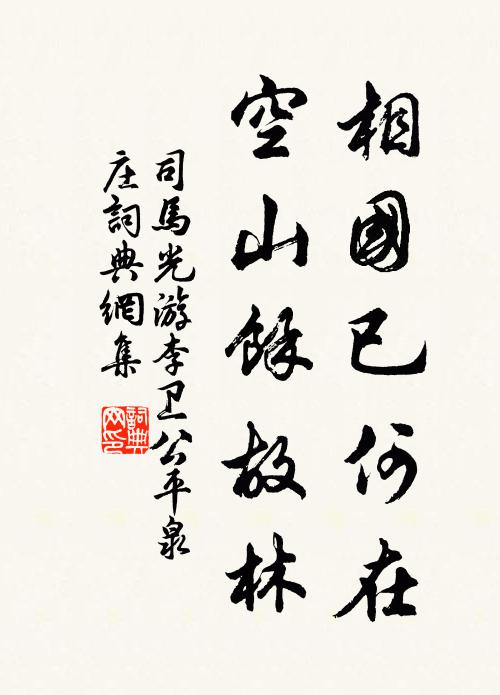 相國已何在
空山餘故林
司馬光游李卫公平泉
庄詞典網集
詞典网印